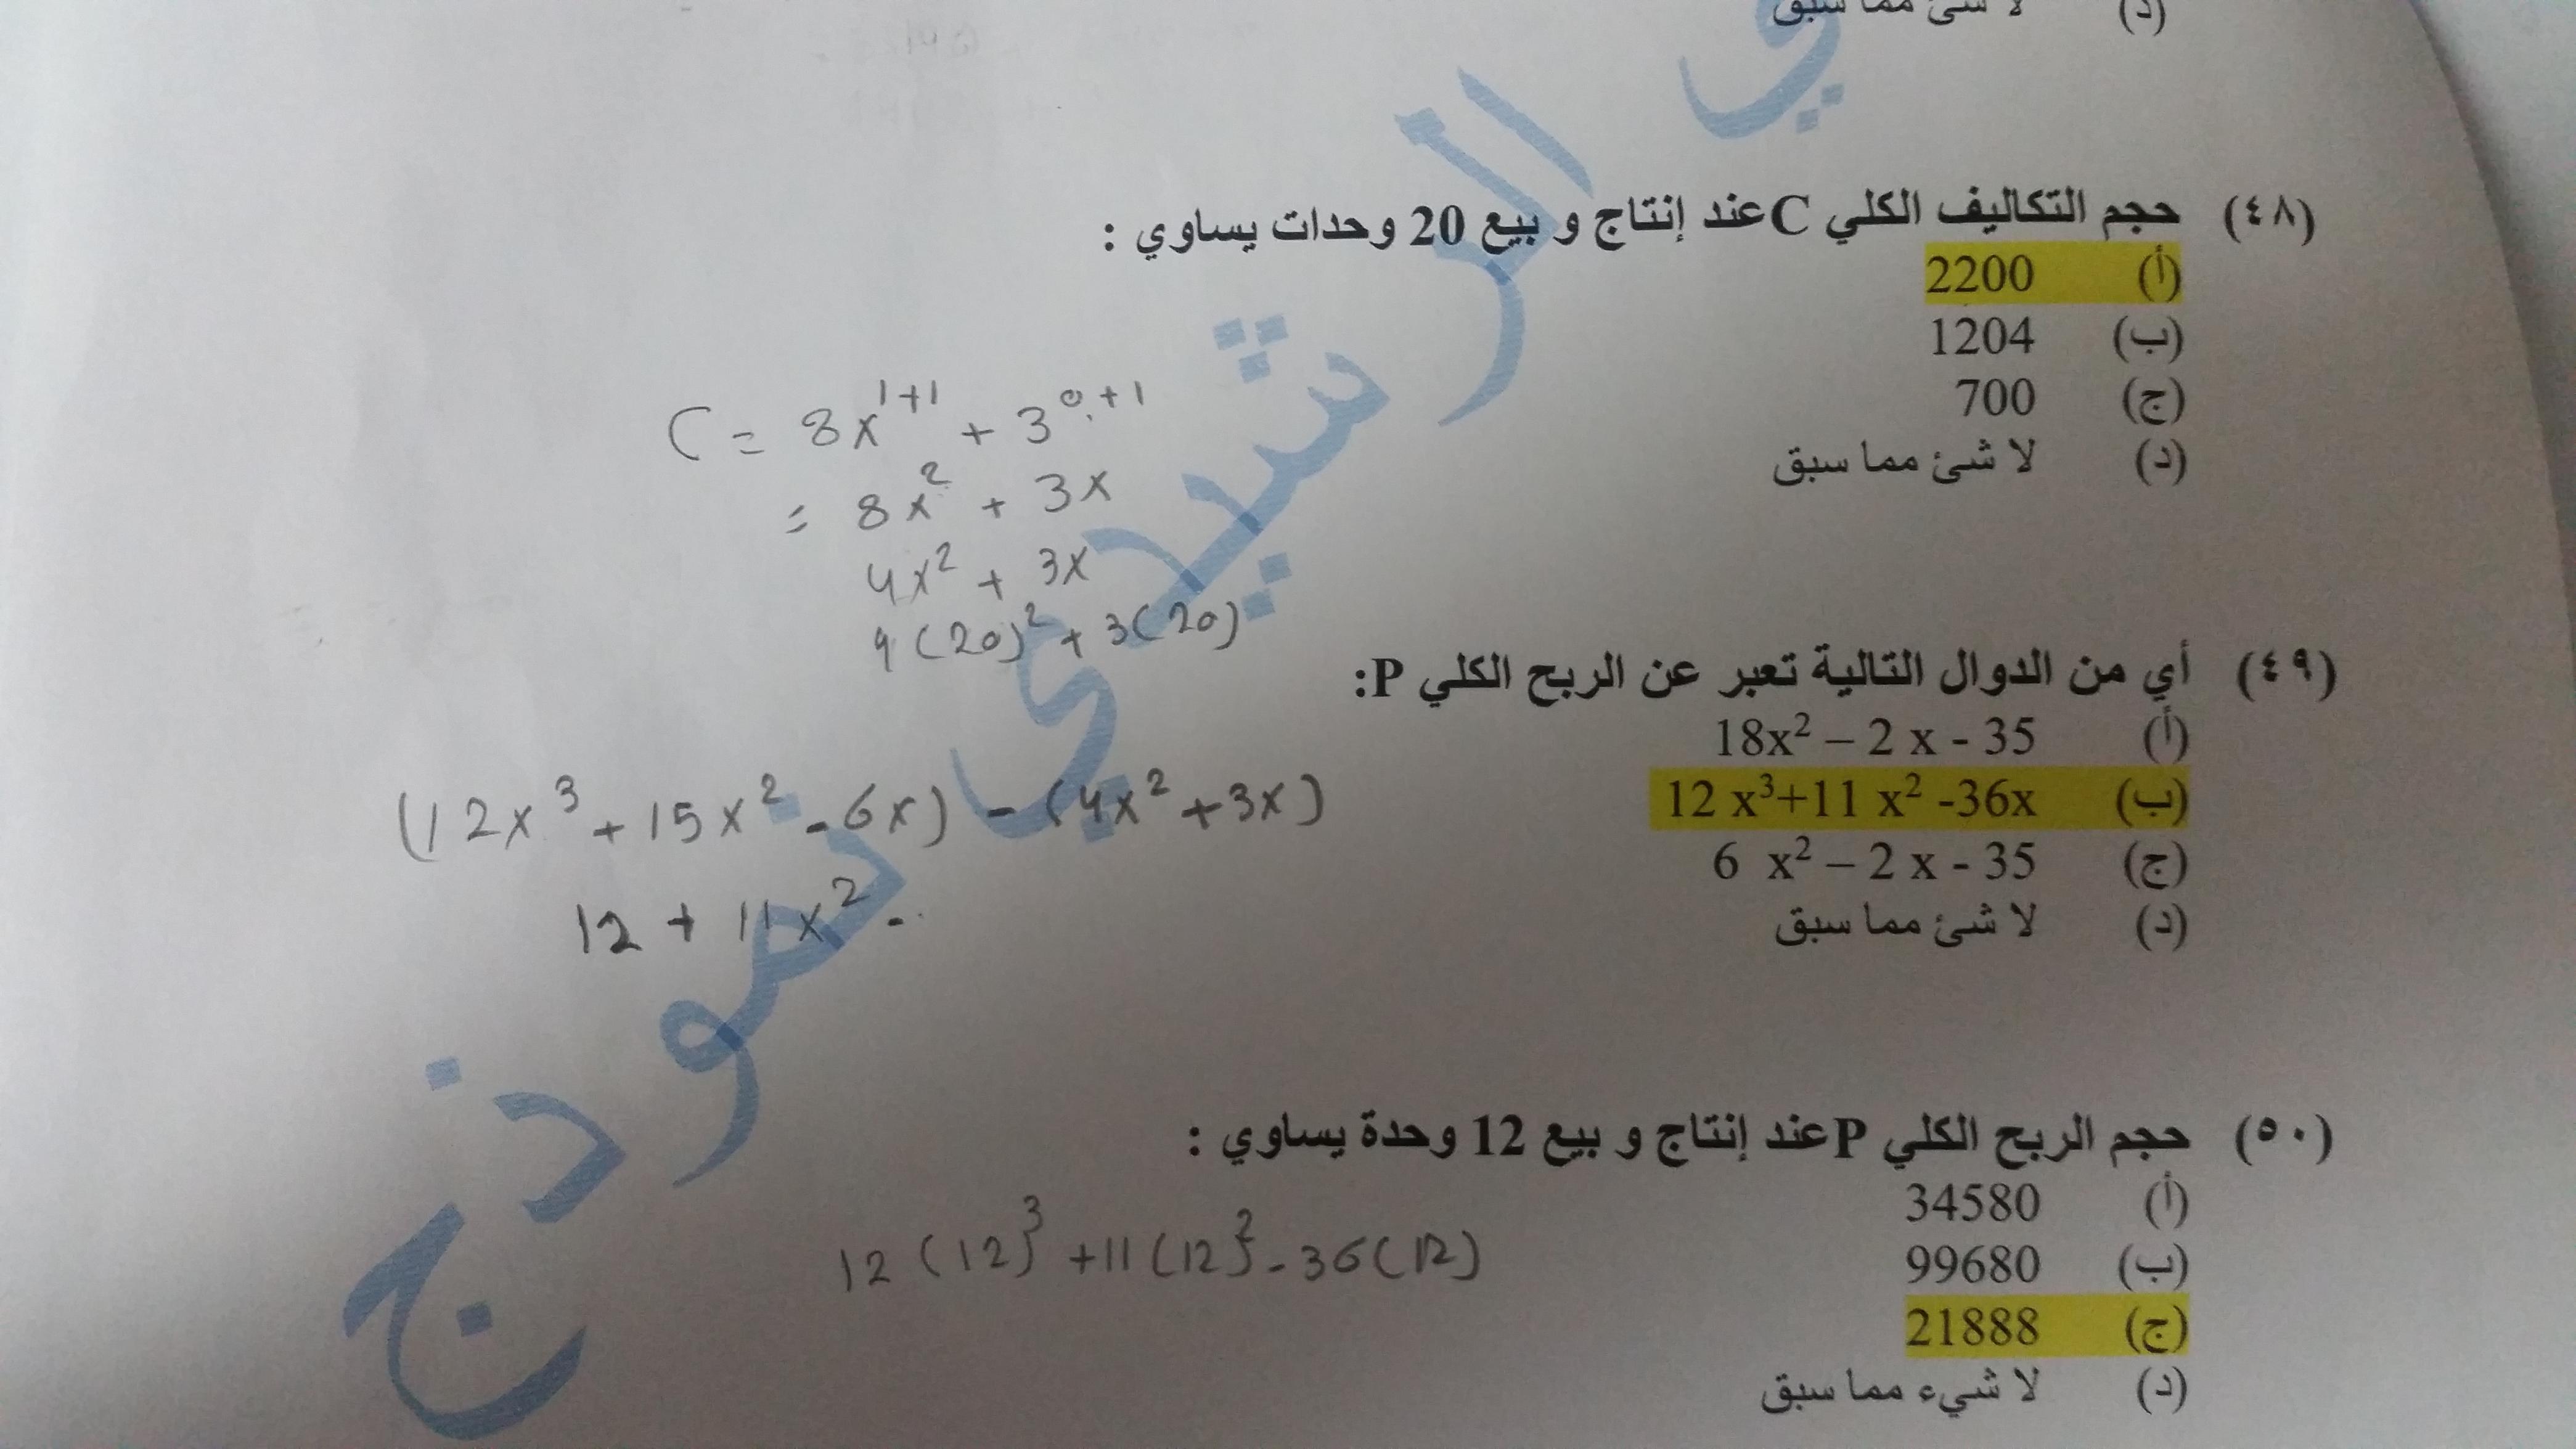 (د) لا شئ مما سبق
(٤٨) حجم التكاليف الكلي C عند إنتاج و بيع 20 وحدات يساوي :
(أ) 2200
(ب) 1204
(ج) 700
(د) لا شئ مما سبق
C = 8x¹⁺¹ + 3⁰⁺¹
= 8x² + 3x
4x² + 3x
4(20)² + 3(20)
(٤٩) أي من الدوال التالية تعبر عن الربح الكلي P:
(أ) 18x² – 2 x - 35
(ب) 12 x³+11 x² -36x
(ج) 6 x² – 2 x - 35
(د) لا شئ مما سبق
(12x³ + 15x² - 6x) - (4x² + 3x)
12 + 11x² -
(٥٠) حجم الربح الكلي P عند إنتاج و بيع 12 وحدة يساوي :
(أ) 34580
(ب) 99680
(ج) 21888
(د) لا شيء مما سبق
12(12)³ + 11(12)² - 36(12)
نموذج الرشيدي